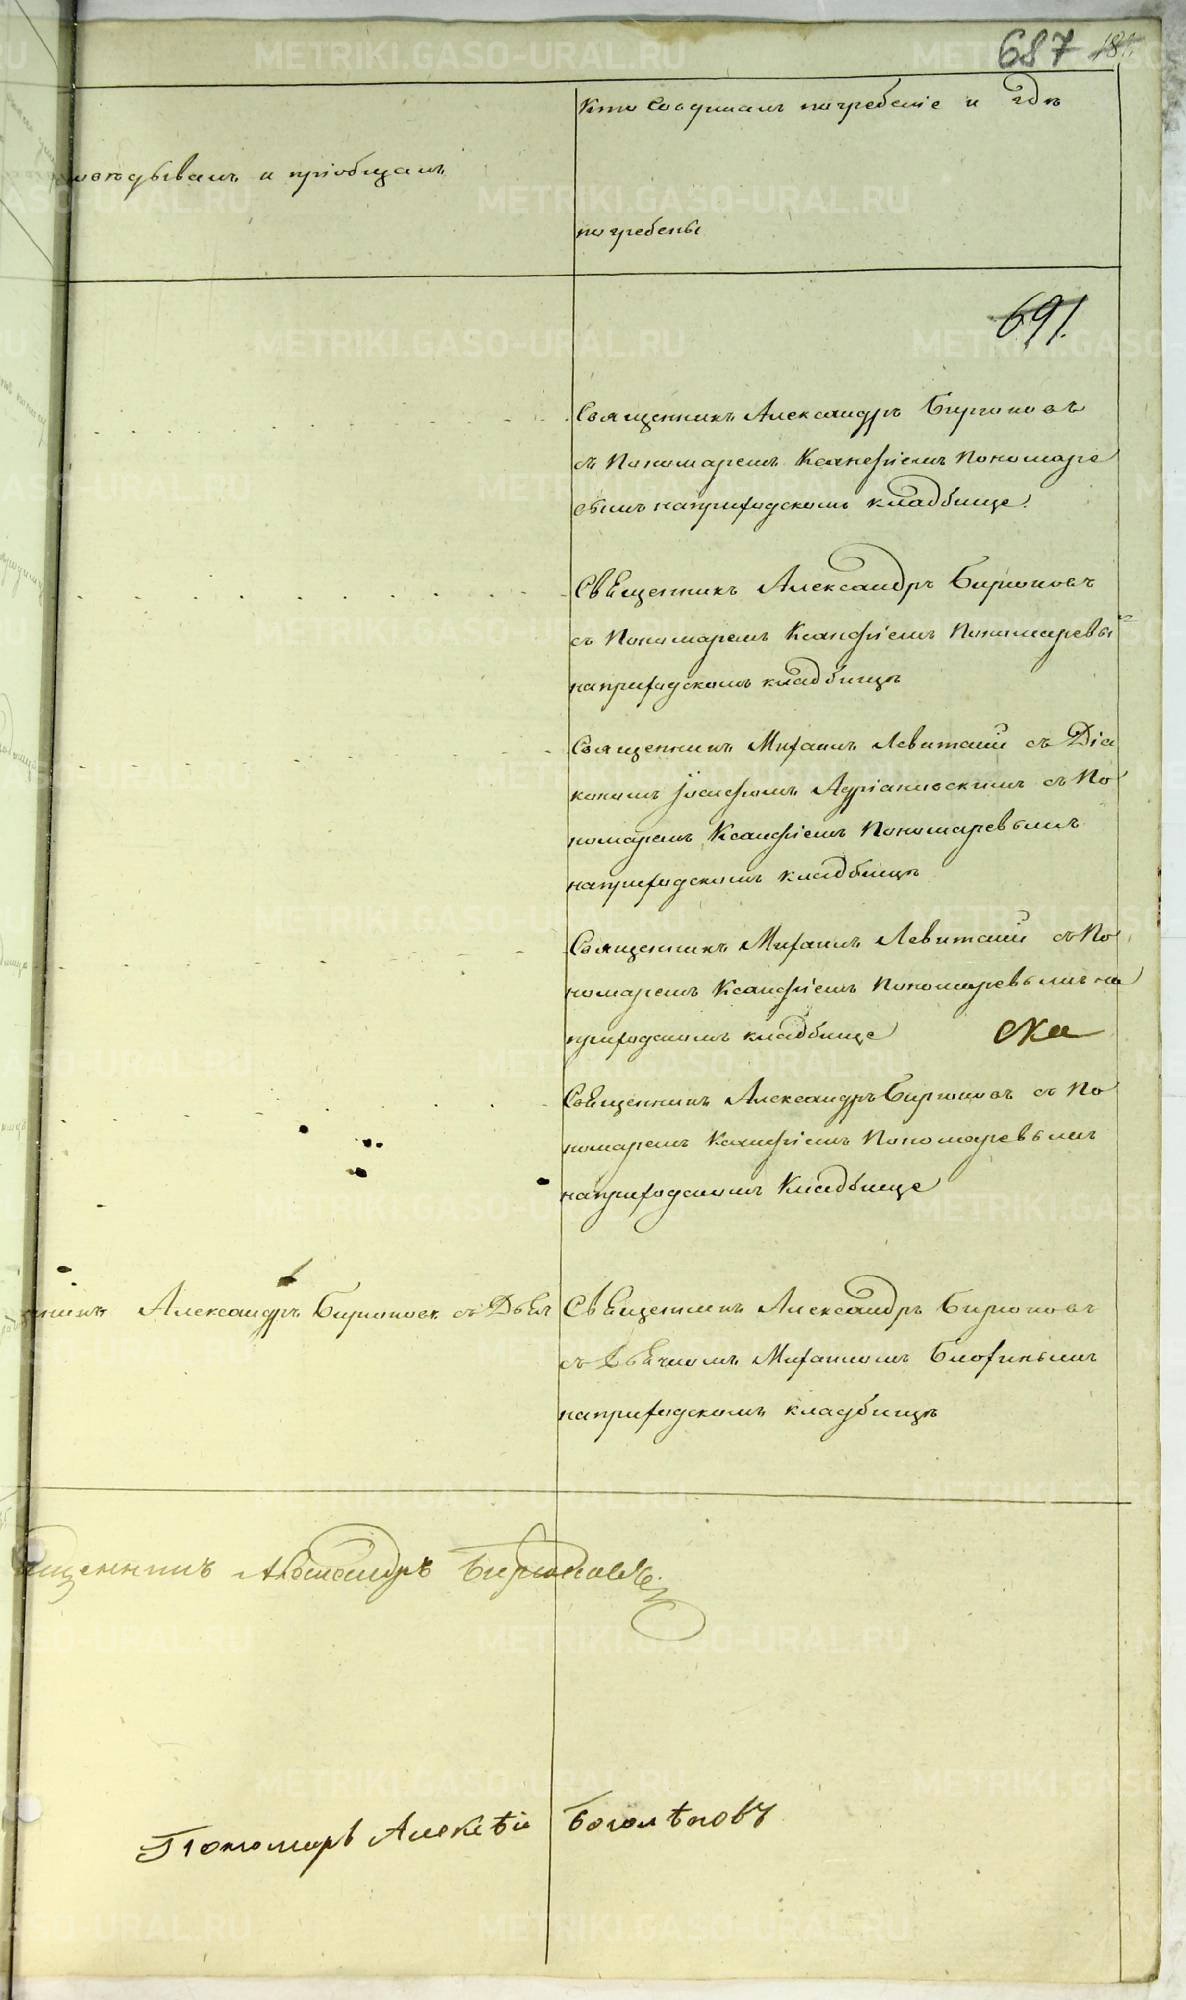 687 181.
Кто Совершалъ погребеніе и гдѣ
исповѣдывалъ и пріобщалъ
погребены
691.
Священникъ Александръ Бирюковъ
съ Пономаремъ Ксанфіемъ Пономаре
вымъ на приходскомъ кладбище.
Священникъ Александръ Бирюковъ
съ Пономаремъ Ксанфіемъ Пономаревы
на приходскомъ кладбищѣ
Священникъ Михаилъ Левитскій съ Діа
кономъ Іосифомъ Адріановскимъ съ По
номаремъ Ксанфіемъ Пономаревымъ
на приходскомъ кладбищѣ
Священникъ Михаилъ Левитскій съ По
номаремъ Ксанфіемъ Пономаревымъ на
приходскомъ кладбище
Священникъ Александръ Бирюковъ съ По
номаремъ Ксанфіемъ Пономаревымъ
на приходскомъ Кладбище
енникъ Александръ Бирюковъ съ Дьяч
Священникъ Александръ Бирюковъ
съ Дьячкомъ Михаиломъ
на приходскомъ кладбищѣ
ященникъ Александръ Бирюковъ
Пономарь Алексѣй Боголѣповъ
METRIKI.GASO-URAL.RU